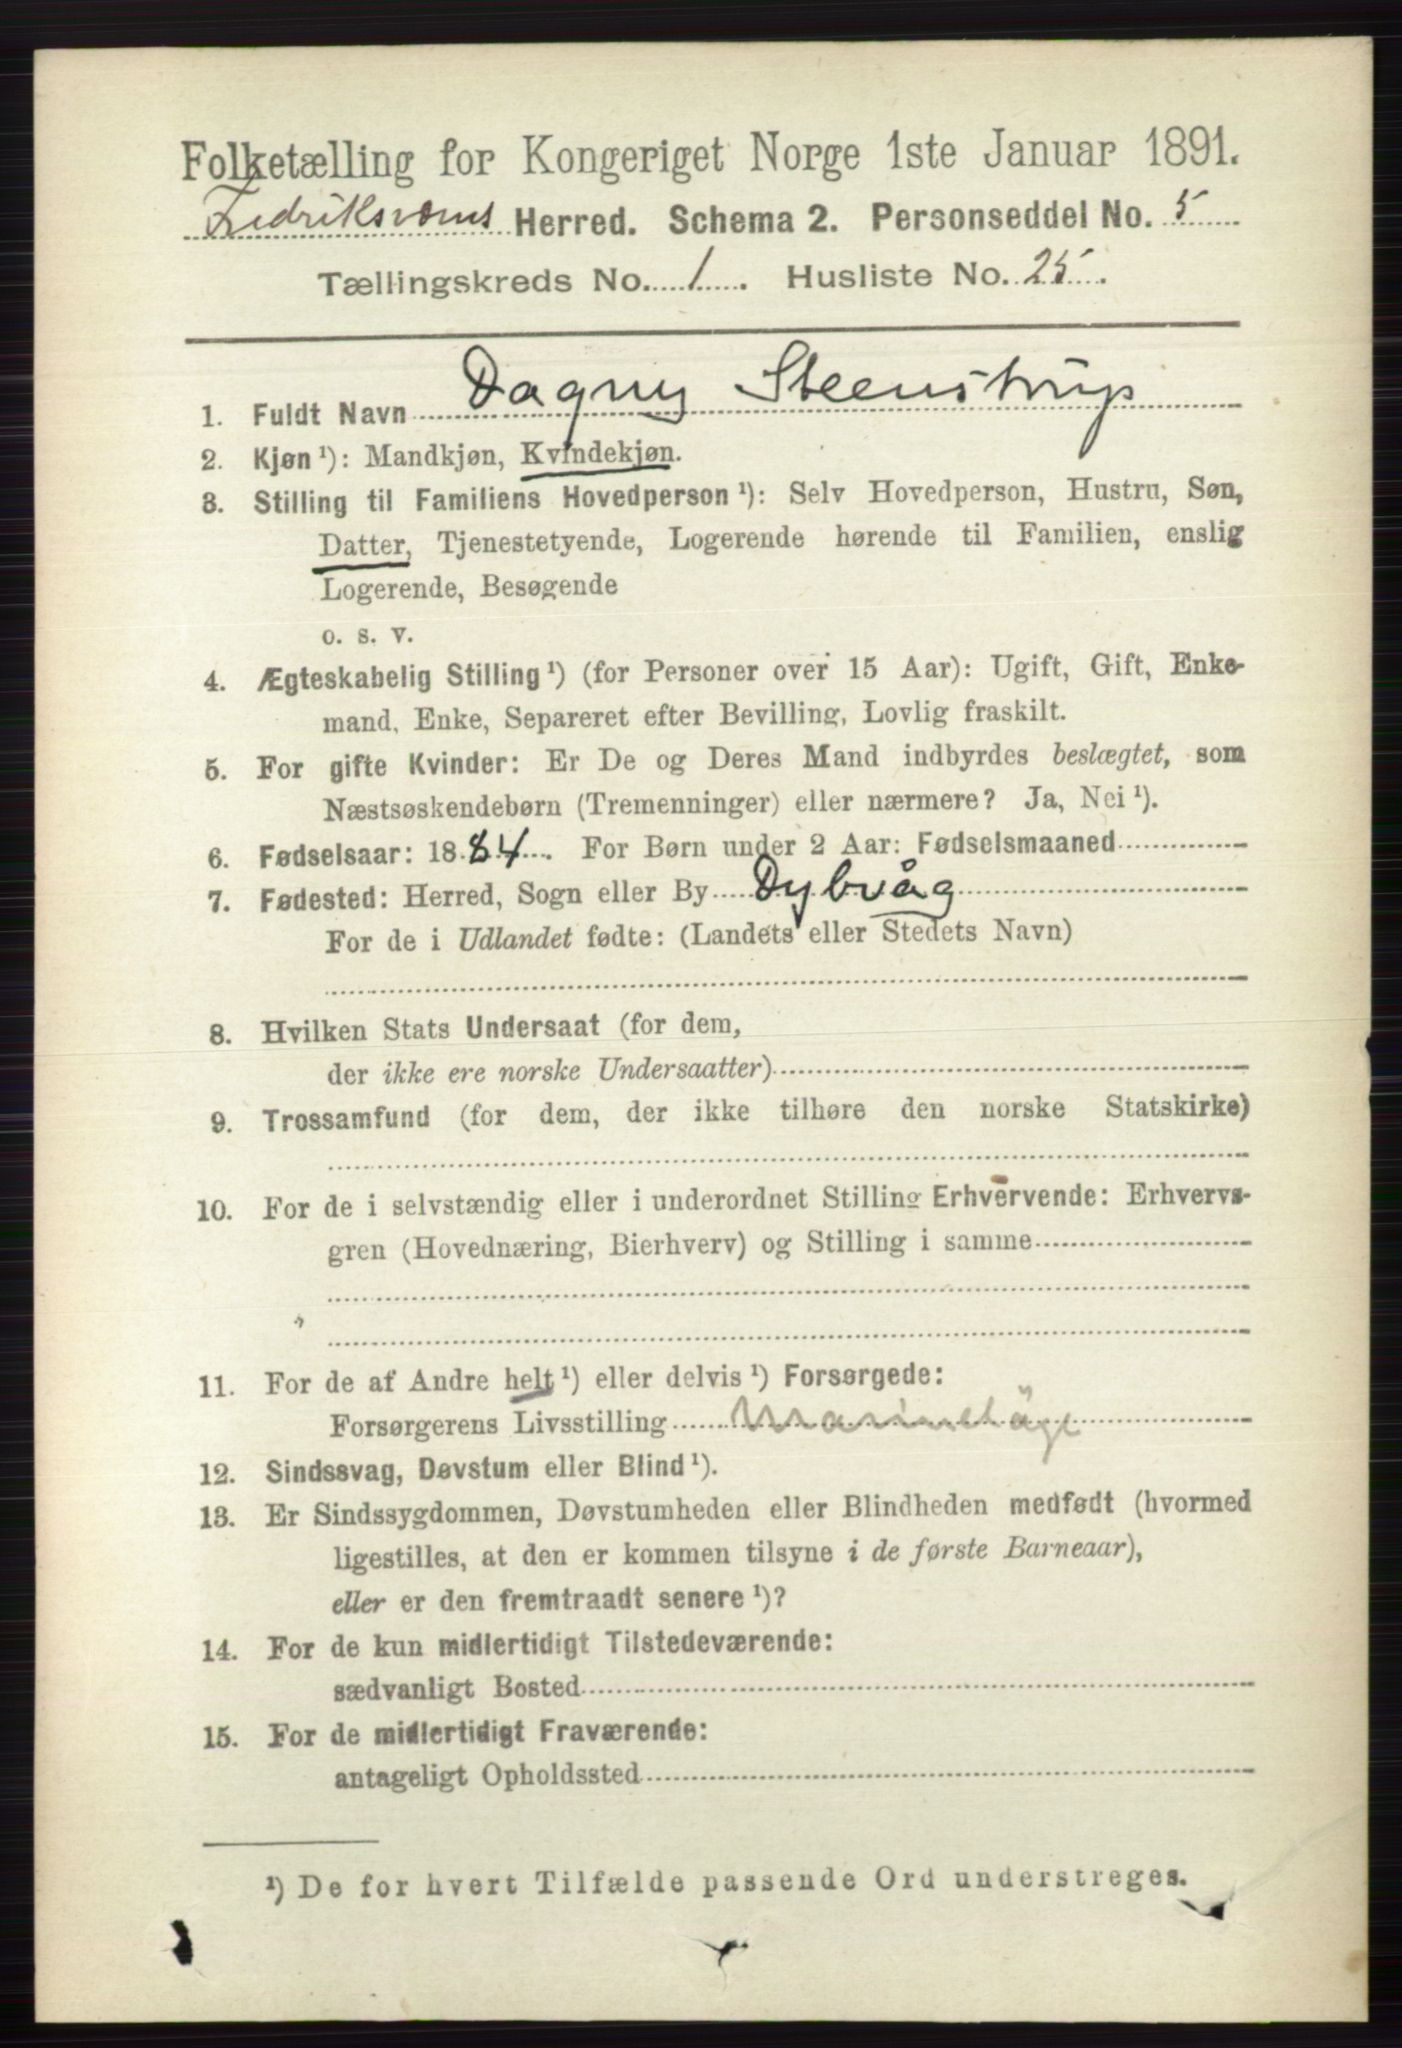 Folketælling for Kongeriget Norge 1ste Januar 1891.
Fredriksværns Herred. Schema 2. Personseddel No. 5
Tællingskreds No. 1. Husliste No. 25.
1. Fuldt Navn Dagny Steenstrup
2. Kjøn ¹): Mandkjøn, Kvindekjøn.
3. Stilling til Familiens Hovedperson ¹): Selv Hovedperson, Hustru, Søn,
Datter, Tjenestetyende, Logerende hørende til Familien, enslig
Logerende, Besøgende
o. s. v.
4. Ægteskabelig Stilling ¹) (for Personer over 15 Aar): Ugift, Gift, Enke-
mand, Enke, Separeret efter Bevilling, Lovlig fraskilt.
5. For gifte Kvinder: Er De og Deres Mand indbyrdes beslægtet, som
Næstsøskendebørn (Tremenninger) eller nærmere? Ja, Nei ¹).
6. Fødselsaar: 1884. For Børn under 2 Aar: Fødselsmaaned
7. Fødested: Herred, Sogn eller By Dybvåg
For de i Udlandet fødte: (Landets eller Stedets Navn)
8. Hvilken Stats Undersaat (for dem,
der ikke ere norske Undersaatter)
9. Trossamfund (for dem, der ikke tilhøre den norske Statskirke)
10. For de i selvstændig eller i underordnet Stilling Erhvervende: Erhvervs-
gren (Hovednæring, Bierhverv) og Stilling i samme
11. For de af Andre helt ¹) eller delvis ¹) Forsørgede:
Forsørgerens Livsstilling Marinelæge
12. Sindssvag, Døvstum eller Blind ¹).
13. Er Sindssygdommen, Døvstumheden eller Blindheden medfødt (hvormed
ligestilles, at den er kommen tilsyne i de første Barneaar),
eller er den fremtraadt senere ¹)?
14. For de kun midlertidigt Tilstedeværende:
sædvanligt Bosted
15. For de midlertidigt Fraværende:
antageligt Opholdssted
¹) De for hvert Tilfælde passende Ord understreges.